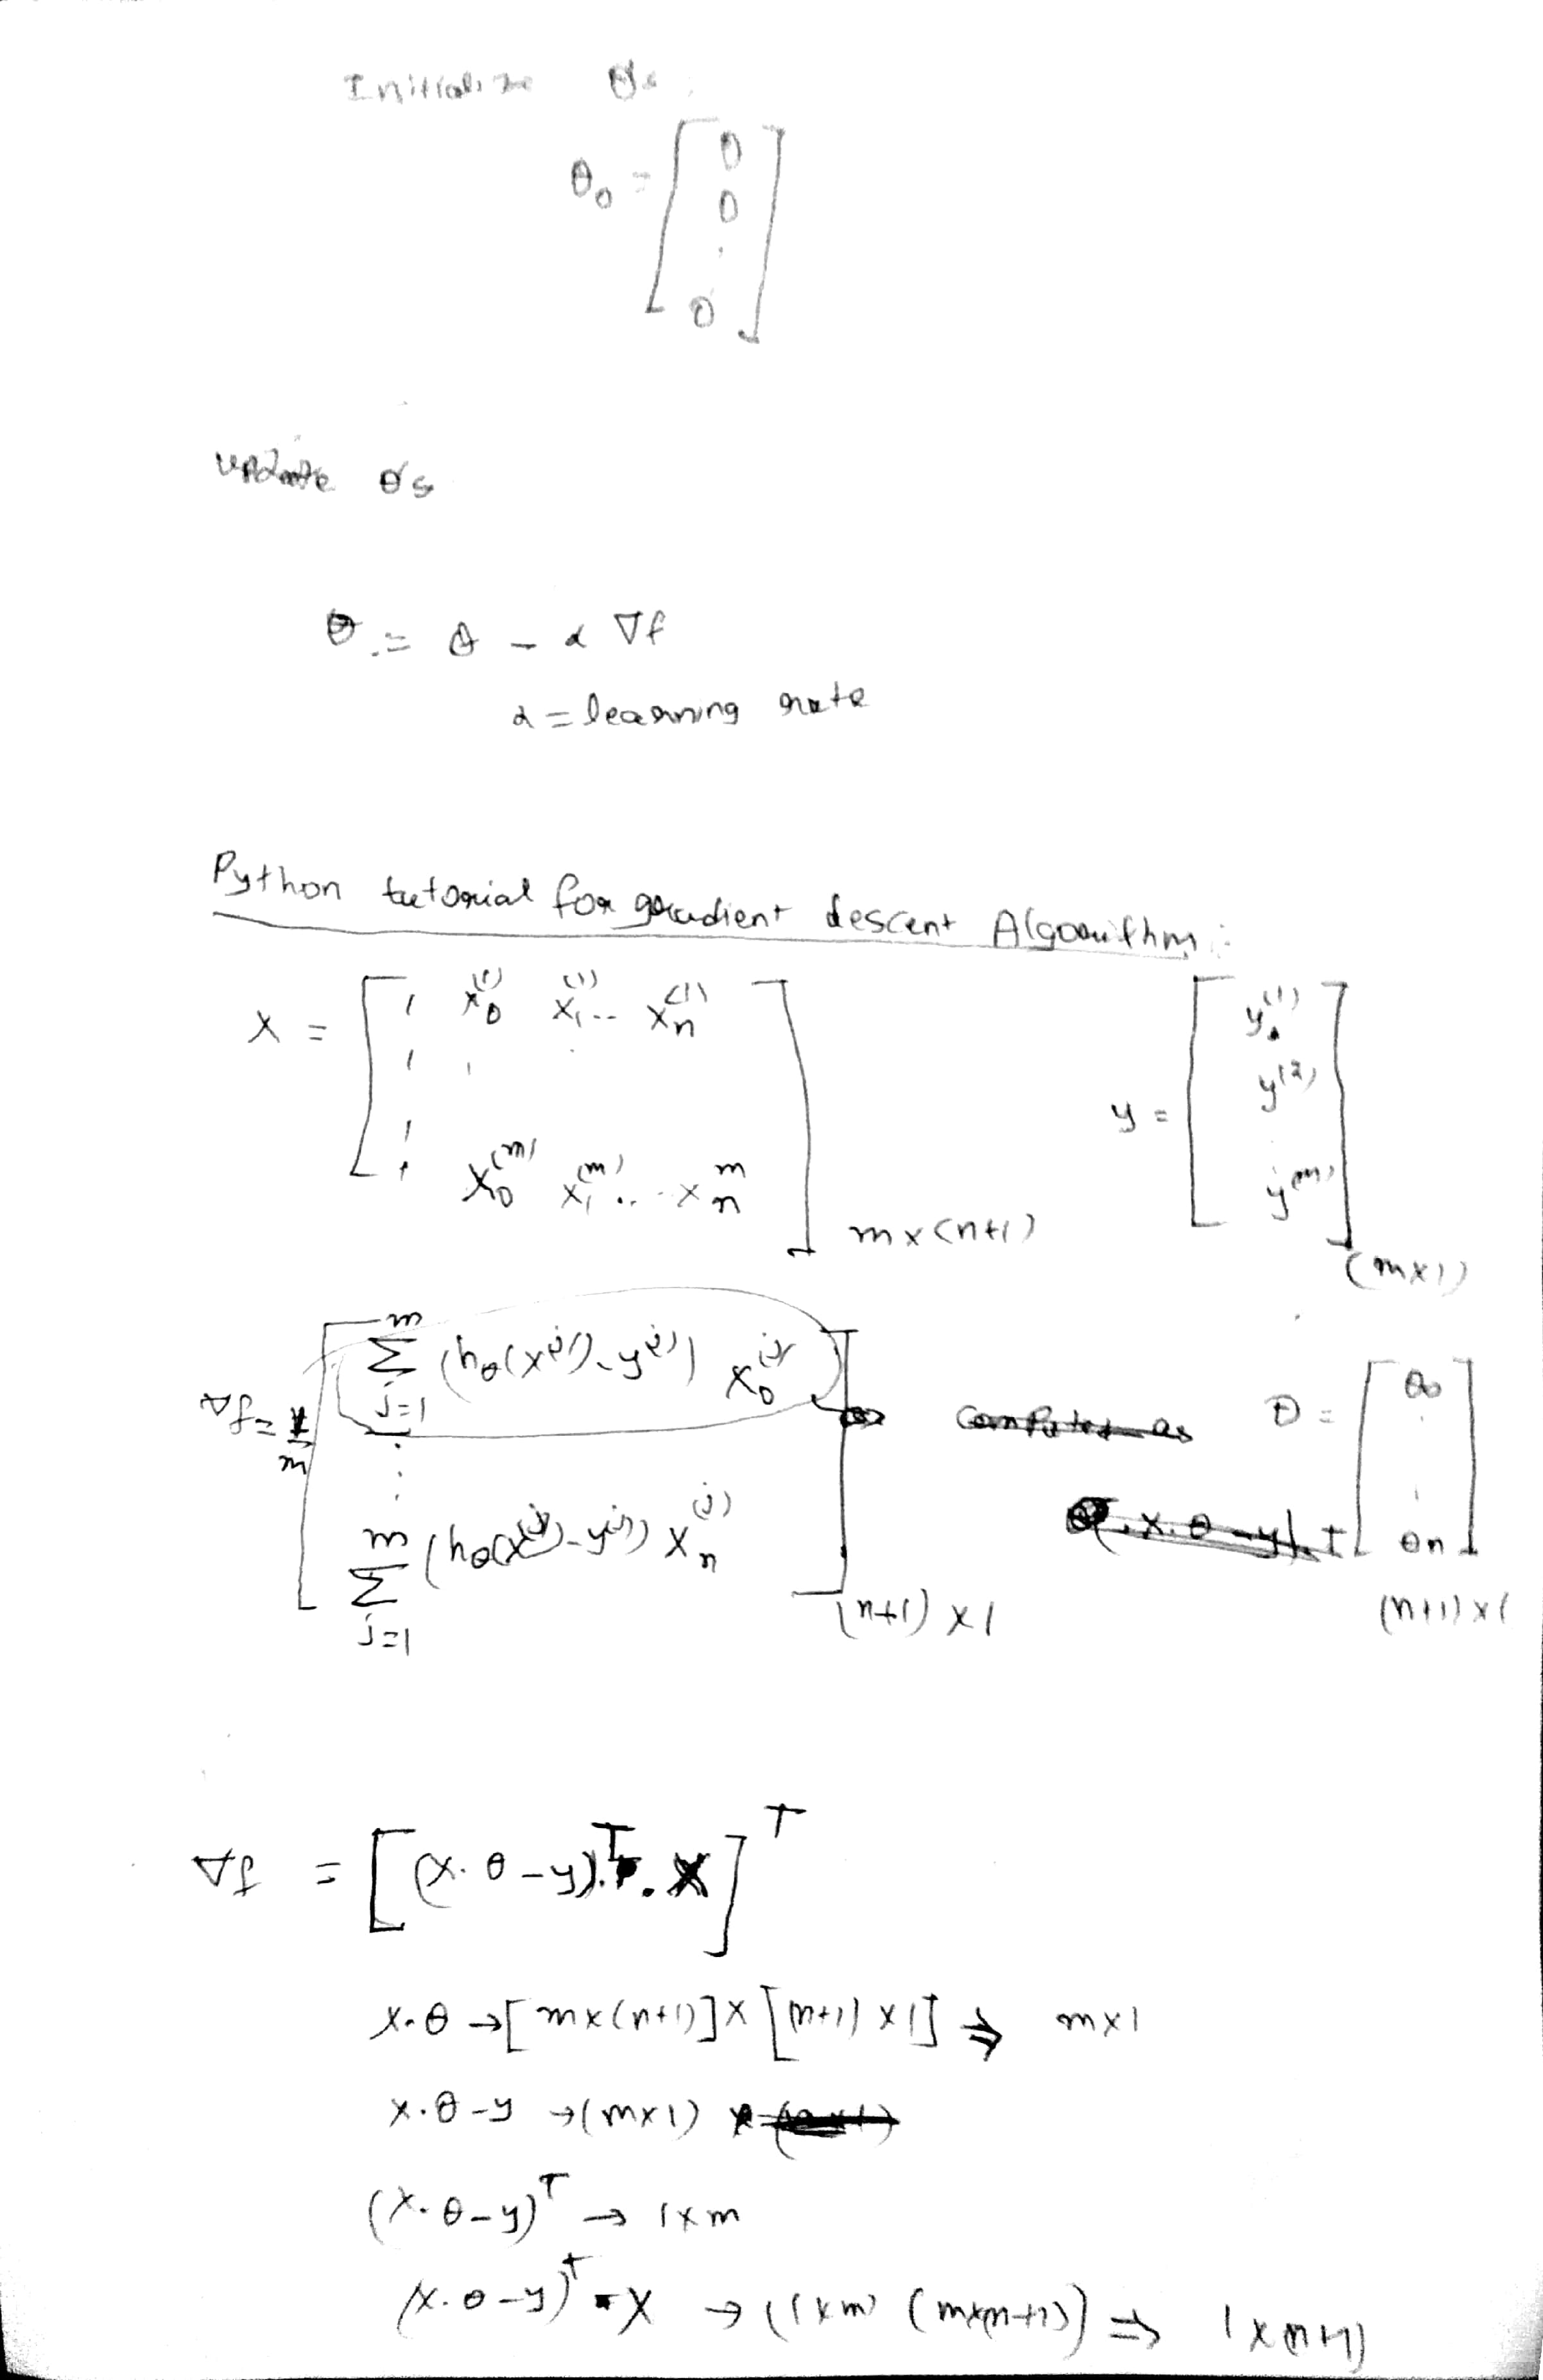 Initialize θ's
θ₀ = [ 0 0 . 0 ]
update θ's
θ := θ - α ∇f
α = learning rate
Python tutorial for gradient descent Algorithm :
X = [ 1 x₀⁽¹⁾ x₁⁽¹⁾ .. xₙ⁽¹⁾
1 .
1
1 x₀⁽ᵐ⁾ x₁⁽ᵐ⁾ .. . xₙᵐ ] m×(n+1)
y = [ y⁽¹⁾ y⁽²⁾ . y⁽ᵐ⁾ ] (m×1)
∇f = 1/m [ Σ_{j=1}^{m} (h_θ(x⁽ʲ⁾) - y⁽ʲ⁾) x₀⁽ʲ⁾
⋮
Σ_{j=1}^{m} (h_θ(x⁽ʲ⁾) - y⁽ʲ⁾) xₙ⁽ʲ⁾ ] (n+1)×1
θ = [ θ₀ . . θn ] (n+1)×1
∇f = [ (X.θ - y)ᵀ . X ]ᵀ
X.θ → [m×(n+1)] × [(n+1) × 1] ⇒ m×1
X.θ - y → (m×1)
(X.θ - y)ᵀ → 1×m
(X.θ - y)ᵀ . X → ((1×m) (m×n+1)) ⇒ 1×(n+1)